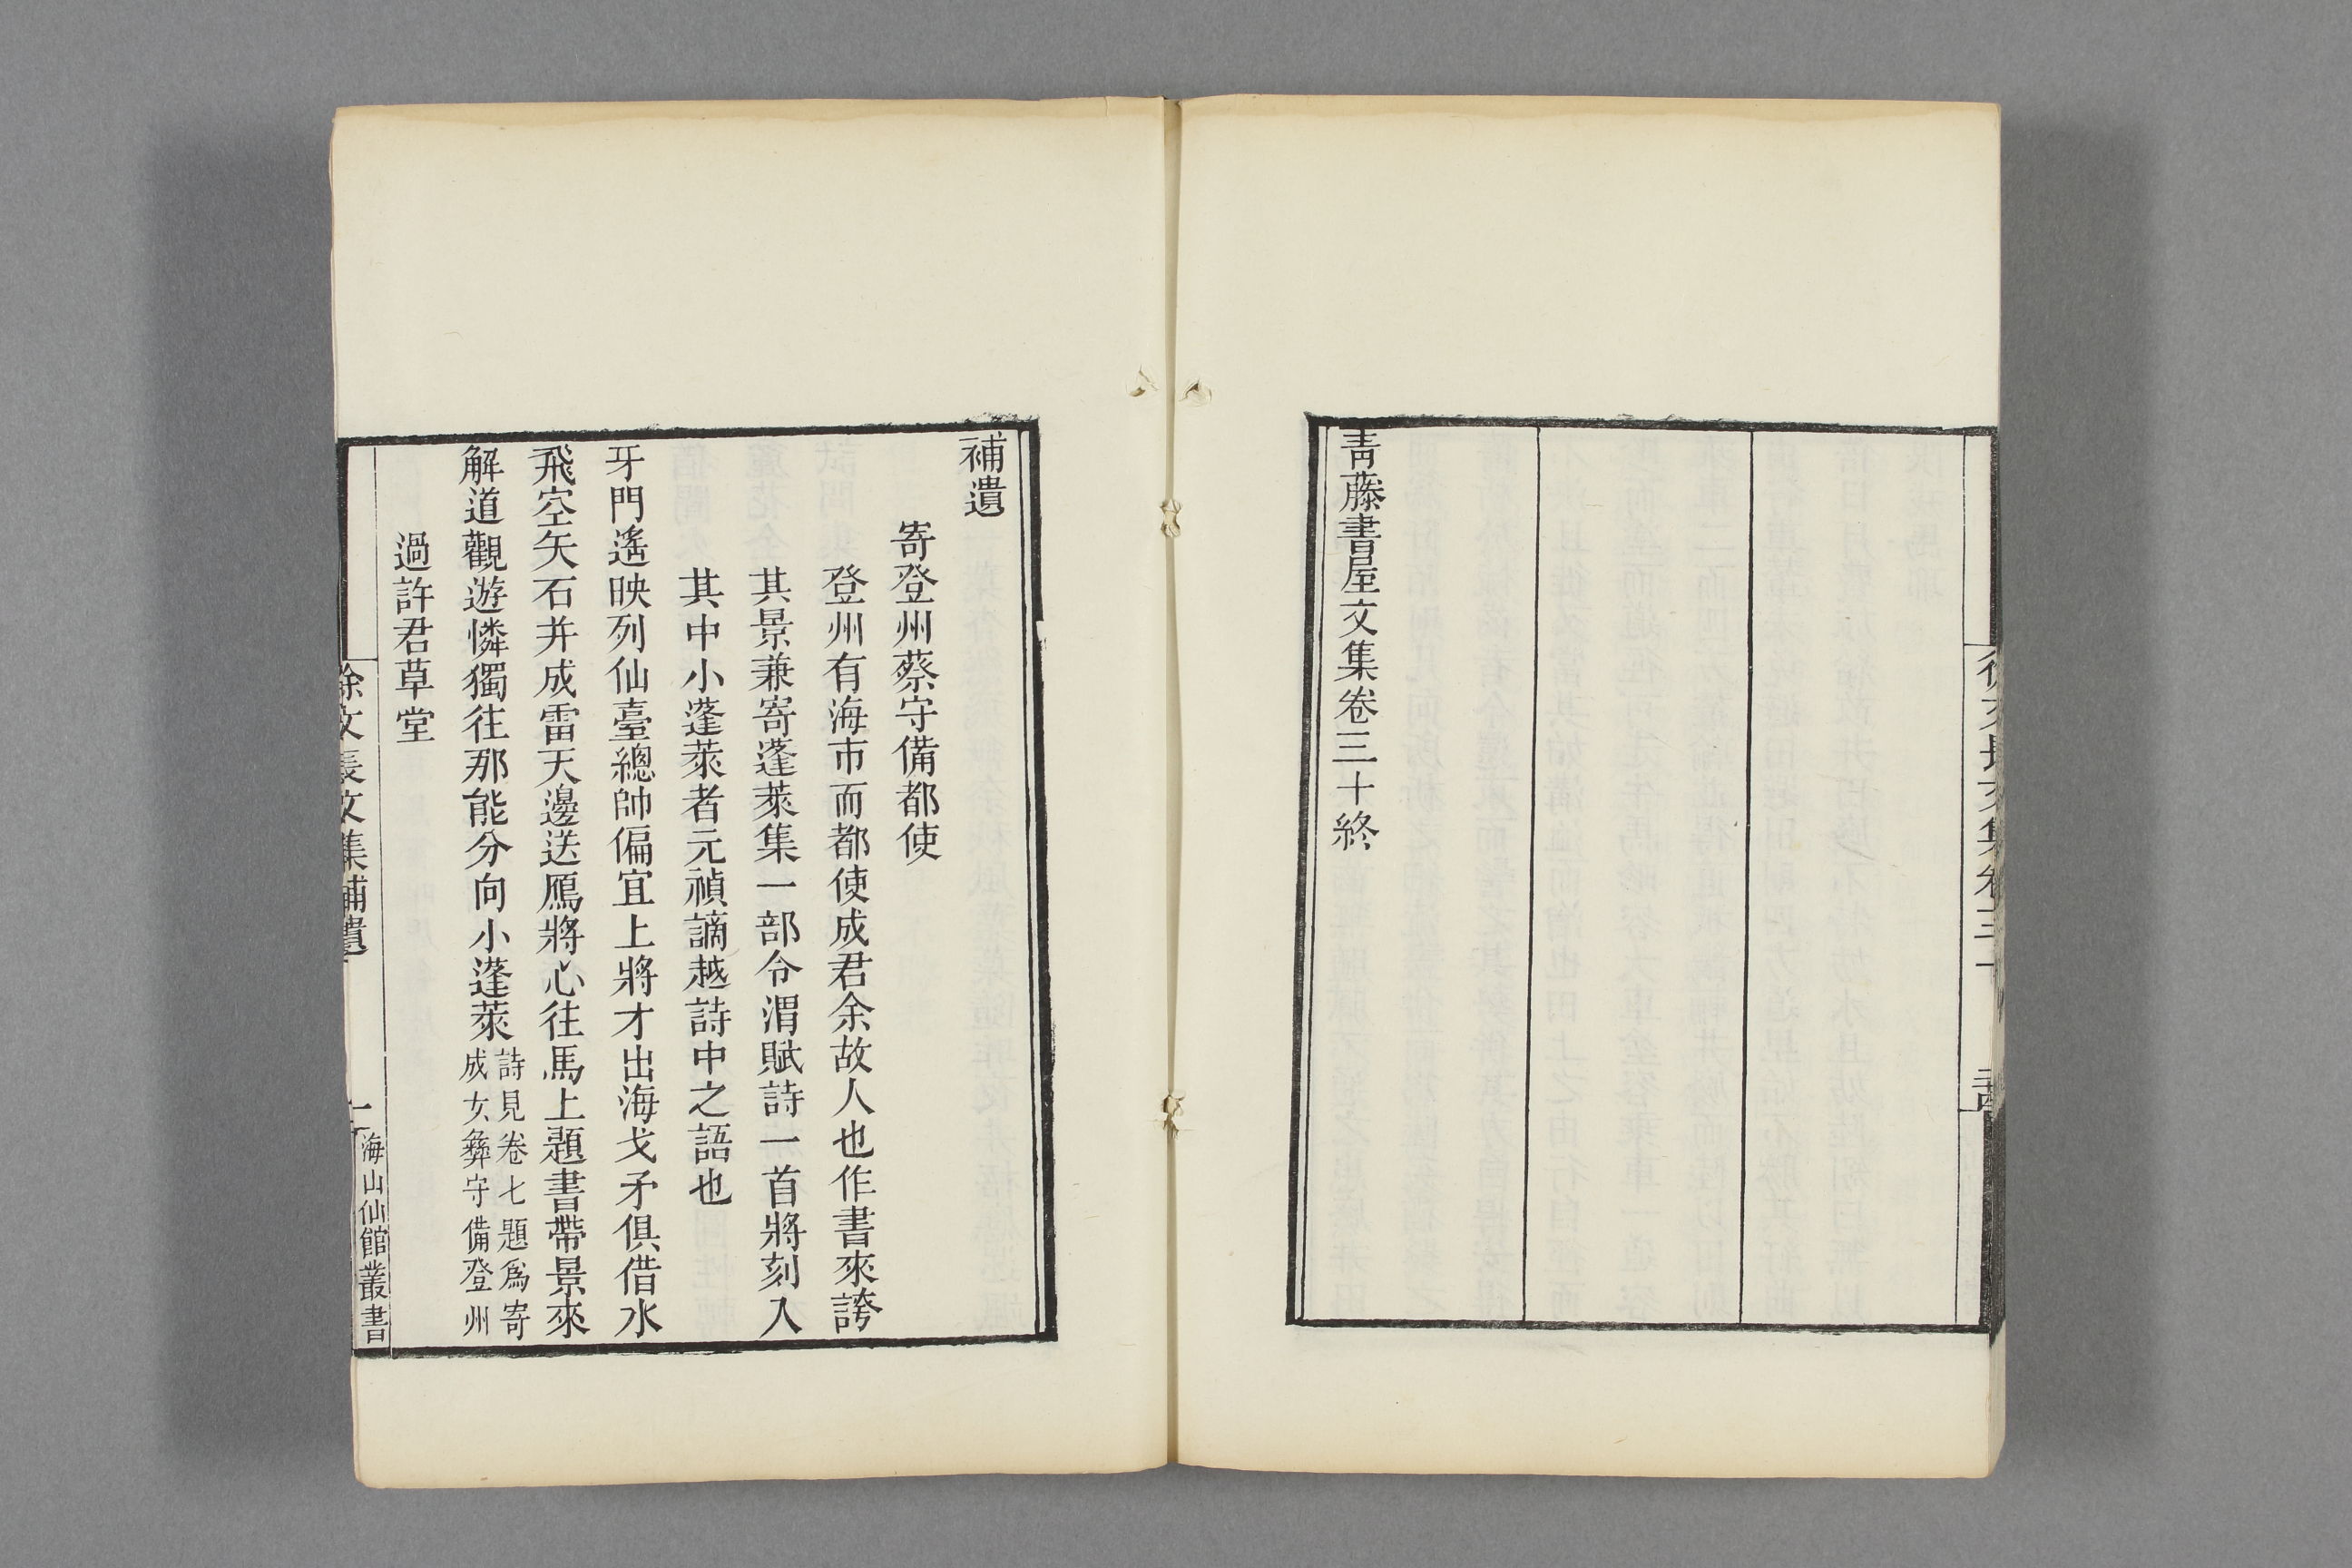 徐文長文集卷三十
青藤書屋文集卷三十終
補遺
寄登州蔡守備都使
登州有海市而都使成君余故人也作書來誇
其景兼寄蓬萊集一部令渭賦詩一首將刻入
其中小蓬萊者元稹謫越詩中之語也
牙門遙映列仙臺總帥偏宜上將才出海戈矛俱借水
飛空矢石并成雷天邊送鴈將心往馬上題書帶景來
解道觀遊憐獨往那能分向小蓬萊詩見卷七題爲寄
成女彝守備登州
過許君草堂
徐文長文集補遺
一
海山仙館叢書